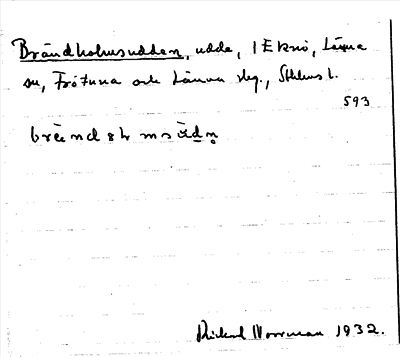 Brändholmsudden, udde, i Eknö, Länna
sn, Frötuna och Länna slg., Sthlms l.
593
brä̀nd ɜ m sùdn̥
Rickard Norrman 1932.